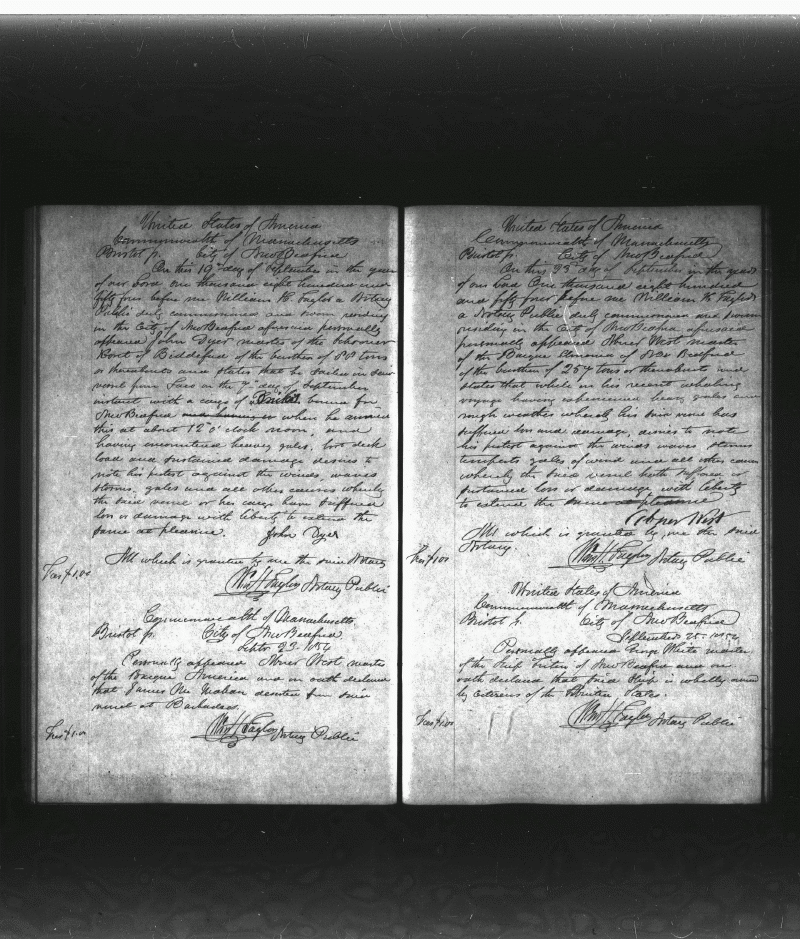 United States of America
Commonwealth of Massachusetts
Bristol ss. City of New Bedford
On this 19th day of September in the year
of our Lord one thousand eight hundred and
fifty four before me William H. Taylor a Notary
Public duly commissioned and sworn residing
in the City of New Bedford aforesaid personally
appeared John Dyer master of the Schooner
of Biddeford of the burthen of 88 tons
or thereabouts and states that he sailed in said
vessel from Saco on the 7th day of September
instant with a cargo of bound for
New Bedford when he arrived
this at about 12 o'clock noon, and
having encountered heavy gales, lost deck
load and sustained damage desires to
note his protest against the winds, waves
storms, gales and all other causes whereby
the said vessel or her cargo have suffered
loss or damage with liberty to extend the
same at pleasure. John Dyer
All which is granted by me the said Notary
Fees $1.00
Wm H. Taylor Notary Public
Commonwealth of Massachusetts
Bristol ss. City of New Bedford
Septr 23. 1854
Personally appeared Abner West master
of the Barque America and on oath declared
that James Mc Mahan deserted from said
vessel at Barbadoes.
Wm H. Taylor Notary Public
Fees $1.00
United States of America
Commonwealth of Massachusetts
Bristol ss. City of New Bedford
On this 23d day of September in the year
of our Lord One thousand eight hundred
and fifty four before me William H. Taylor
a Notary Public duly commissioned and sworn
residing in the City of New Bedford aforesaid
personally appeared Abner West master
of the Barque America of New Bedford
of the burthen of 257 tons or thereabouts and
states that while on his recent whaling
voyage having experienced heavy gales and
rough weather whereby his said vessel has
suffered loss and damage, desires to note
his protest against the winds waves storms
tempests gales of wind and all other causes
whereby the said vessel hath suffered or
sustained loss or damage with liberty
to extend the same
Abner West
All which is granted by me the said
Notary.
Fees $1.00
Wm H. Taylor Notary Public
United States of America
Commonwealth of Massachusetts
Bristol ss. City of New Bedford
September 25. 1854
Personally appeared George White master
of the Ship Triton of New Bedford and on
oath declared that said Ship is wholly owned
by Citizens of the United States.
Wm H. Taylor Notary Public
Fees $1.00